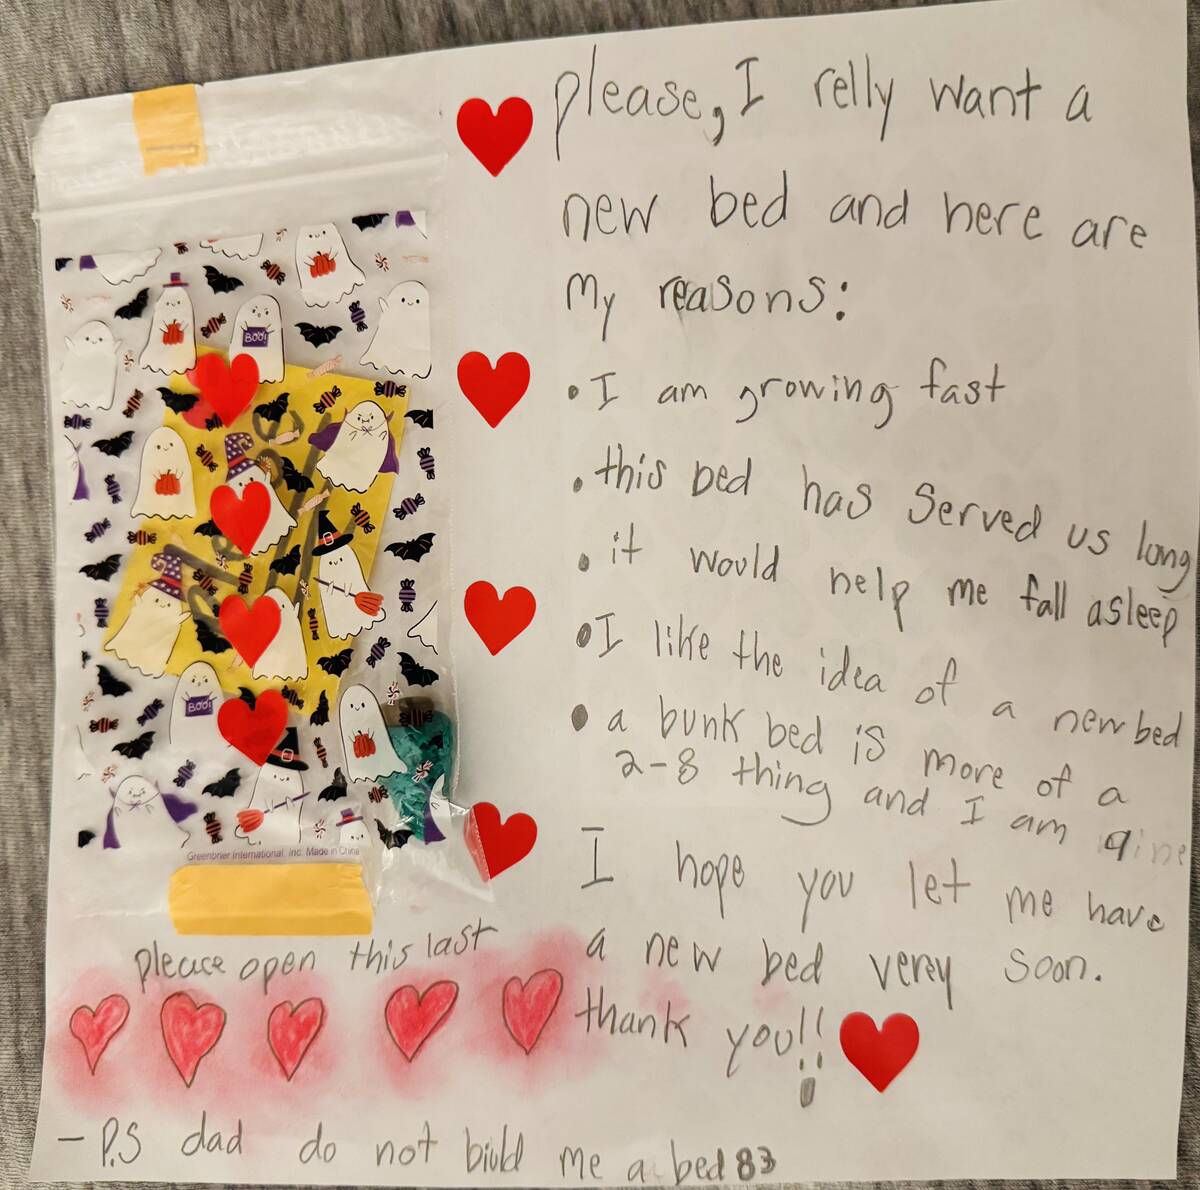 please, I relly want a
new bed and here are
my reasons:
• I am growing fast
• this bed has served us long
• it would help me fall asleep
• I like the idea of a new bed
• a bunk bed is more of a
2-8 thing and I am nine
I hope you let me have
a new bed verey soon.
thank you!!
BOO!
BOO!
Greenbrier International, Inc. Made in China
please open this last
- P.S dad do not biuld me a bed 83